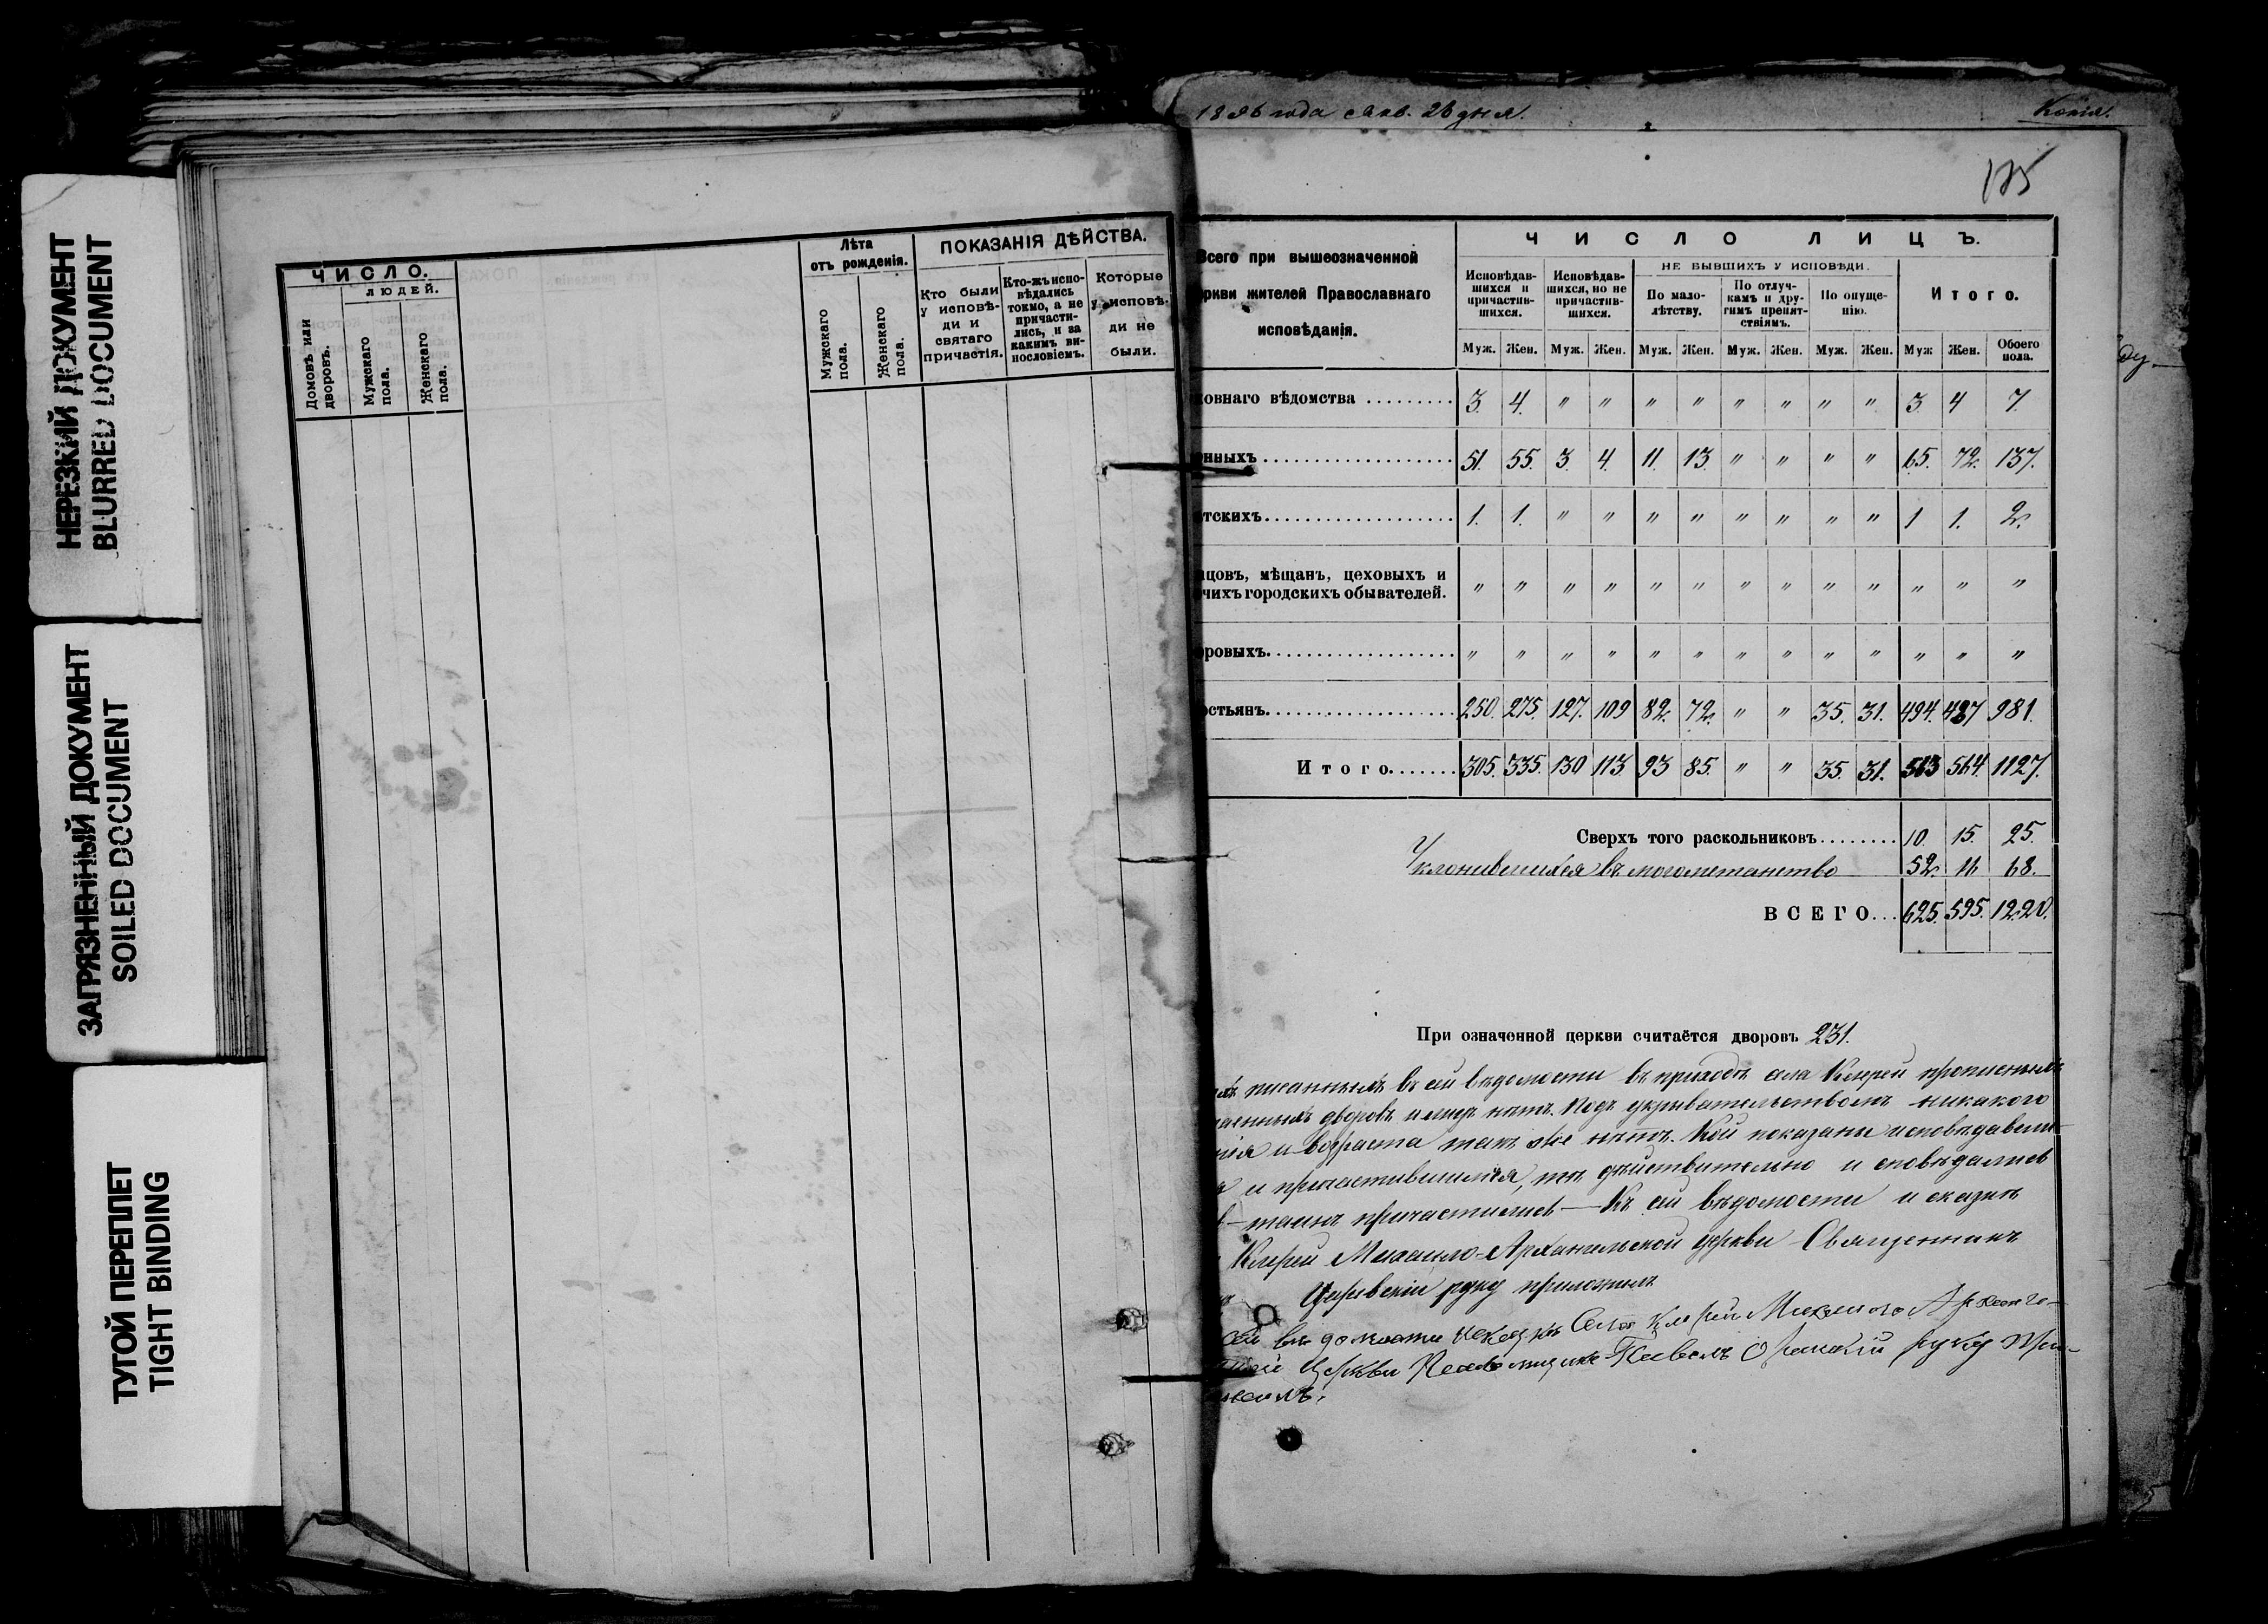 НЕРЕЗКИЙ ДОКУМЕНТ
BLURRED DOCUMENT
ЗАГРЯЗНЕННЫЙ ДОКУМЕНТ
SOILED DOCUMENT
ТУГОЙ ПЕРЕПЛЕТ
TIGHT BINDING
ЧИСЛО.
ЛЮДЕЙ.
Домовъ или дворовъ.
Мужскаго пола.
Женскаго пола.
Лѣта
отъ рожденія.
Мужскаго пола.
Женскаго пола.
ПОКАЗАНІЯ ДѢЙСТВА.
Кто были
у исповѣ-
ди и
святаго
причастія.
Кто-жъ испо-
вѣдались
токмо, а не
причасти-
лись, и за
какимъ ви-
нословіемъ.
Которые
у исповѣ-
ди не
были.
года 26 дня.
Копія.
Всего при вышеозначенной
ркви жителей Православнаго
исповѣданія.
ЧИСЛО ЛИЦЪ.
Исповѣдав-
шихся и
причастив-
шихся.
Исповѣдав-
шихся, но не
причастив-
шихся.
НЕ БЫВШИХЪ У ИСПОВѢДИ.
По мало-
лѣтству.
По отлуч-
камъ и дру-
гимъ препят-
ствіямъ.
По опуще-
нію.
Итого.
Муж. Жен. Муж. Жен. Муж. Жен. Муж. Жен. Муж. Жен. Муж Жен. Обоего пола.
ховнаго вѣдомства ......... 3. 4. " " " " " " " " 3. 4 7.
нныхъ .................... 51. 55. 3. 4. 11. 13. " " " " 65. 72. 137.
тскихъ.................... 1. 1. " " " " " " " " 1 1. 2.
цовъ, мѣщанъ, цеховыхъ и
чихъ городскихъ обывателей. " " " " " " " " " " " " "
ровыхъ.................... " " " " " " " " " " " " "
стьянъ.................... 250. 275. 127. 109 82. 72. " " 35. 31. 494. 487 981.
Итого....... 305. 335. 130 113. 93 85. " " 35. 31. 563 564. 1127.
Сверхъ того раскольниковъ........ 10. 15. 25.
Уклонившихся въ могометанство 52. 16 68.
ВСЕГО... 625. 595. 1220.
При означенной церкви считаётся дворовъ 231.
писанныхъ въ сей вѣдомости въ приходѣ села прописныхъ
дворовъ и лицъ нѣтъ. Подъ укрывательствомъ никакого
и возраста такъ же нѣтъ. Кои показаны исповѣдавши-
и причастившимися, тѣ дѣйствительно исповѣдались
таинъ причастились — Къ сей вѣдомости и сказкѣ
Михаило-Архангельской церкви Священникъ
руку приложилъ
вѣдомости и сказкѣ Села Михаило Арханге-
Церкви Псаломщикъ Павелъ руку при-